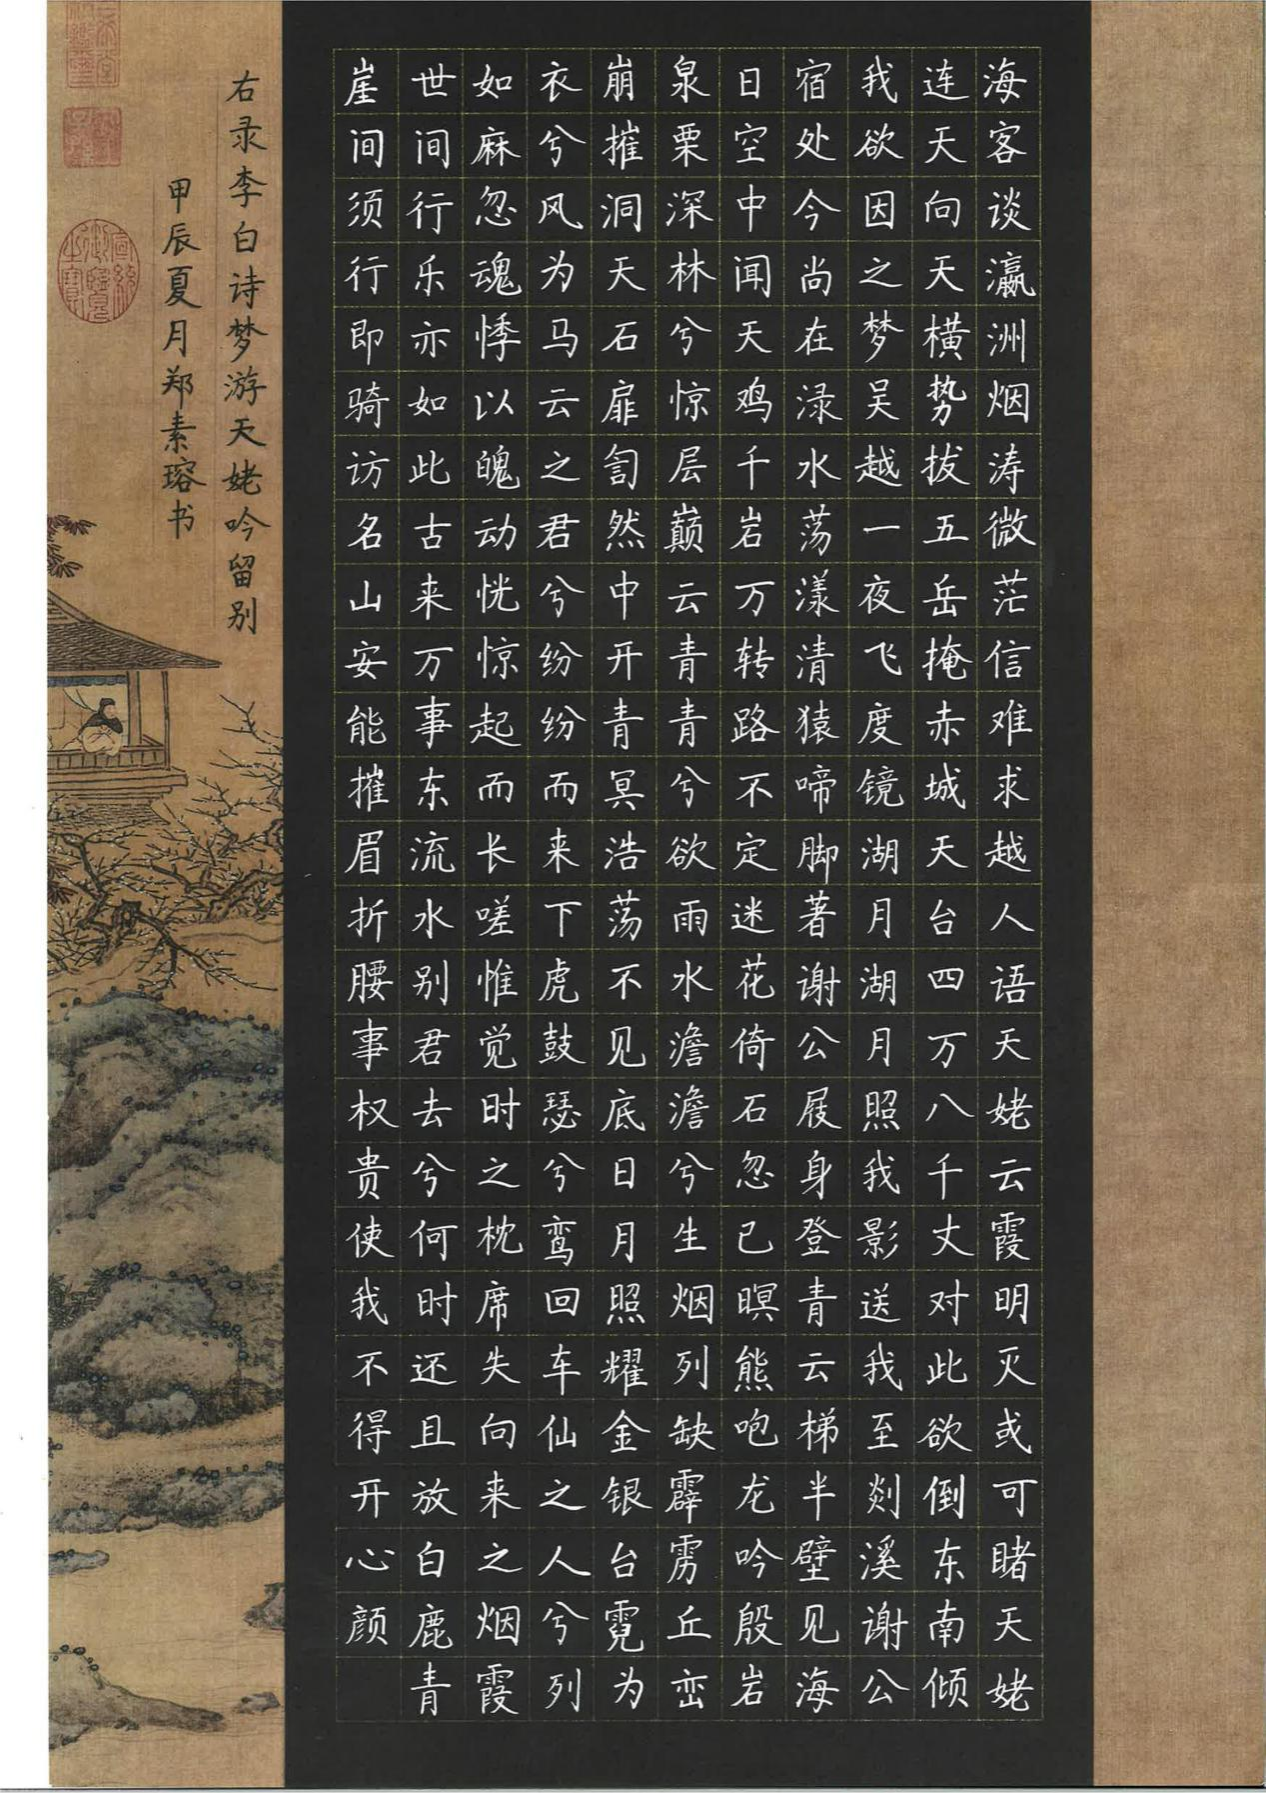 海客谈瀛洲烟涛微茫信难求越人语天姥云霞明灭或可睹天姥
连天向天横势拔五岳掩赤城天台四万八千丈对此欲倒东南倾
我欲因之梦吴越一夜飞度镜湖月湖月照我影送我至剡溪谢公
宿处今尚在渌水荡漾清猿啼脚著谢公屐身登青云梯半壁见海
日空中闻天鸡千岩万转路不定迷花倚石忽已暝熊咆龙吟殷岩
泉栗深林兮惊层巅云青青兮欲雨水澹澹兮生烟列缺霹雳丘峦
崩摧洞天石扉訇然中开青冥浩荡不见底日月照耀金银台霓为
衣兮风为马云之君兮纷纷而来下虎鼓瑟兮鸾回车仙之人兮列
如麻忽魂悸以魄动恍惊起而长嗟惟觉时之枕席失向来之烟霞
世间行乐亦如此古来万事东流水别君去兮何时还且放白鹿青
崖间须行即骑访名山安能摧眉折腰事权贵使我不得开心颜
右录李白诗梦游天姥吟留别
甲辰夏月郑素瑢书